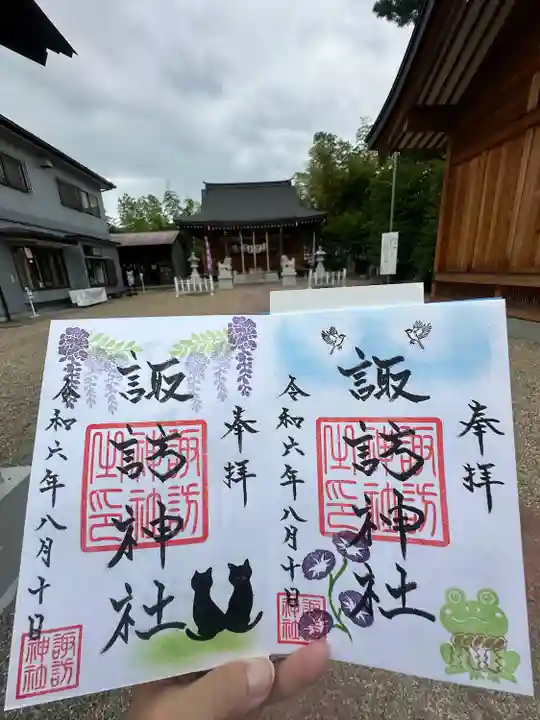 奉拝
諏訪神社
令和六年八月十日
諏訪神社之印
諏訪神社
奉拝
諏訪神社
令和六年八月十日
諏訪神社之印
諏訪神社